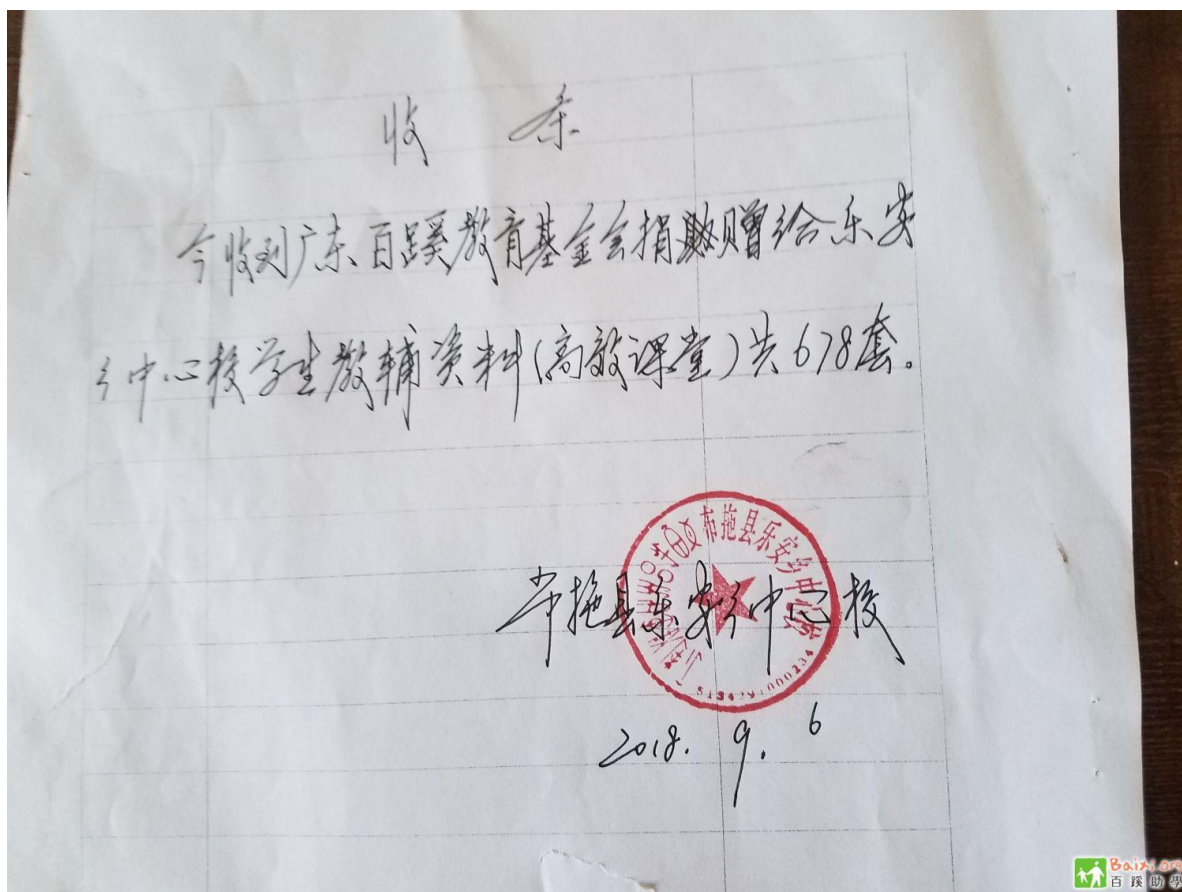 收 条
今收到广东百蹊教育基金会捐赠给乐安
乡中心校学生教辅资料(高效课堂)共678套。
布拖县乐安乡中心校
布拖县乐安乡中心校
5134291000234
2018. 9. 6
Baixi.org
百蹊助學